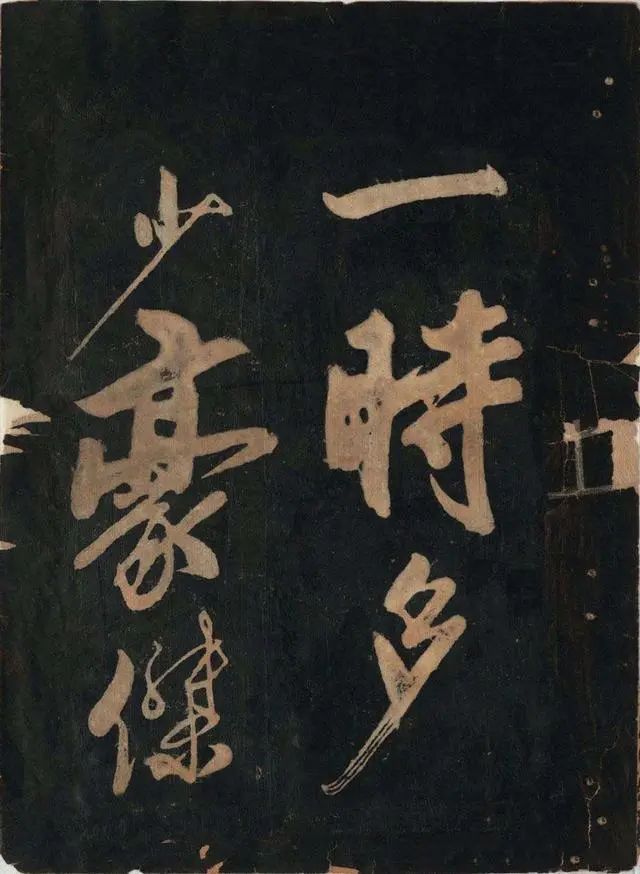 一時多
少豪傑